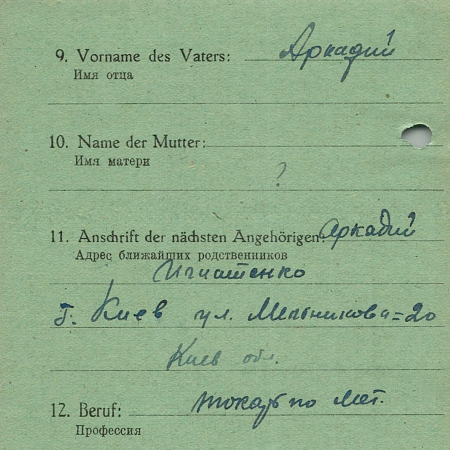 9. Vorname des Vaters: Аркадий
Имя отца
10. Name der Mutter:
Имя матери
?
11. Anschrift der nächsten Angehörigen: Аркадий
Адрес ближайших родственников
Игнатенко
г. Киев ул. Мельникова=20
Киев обл.
12. Beruf: токарь по мет.
Профессия